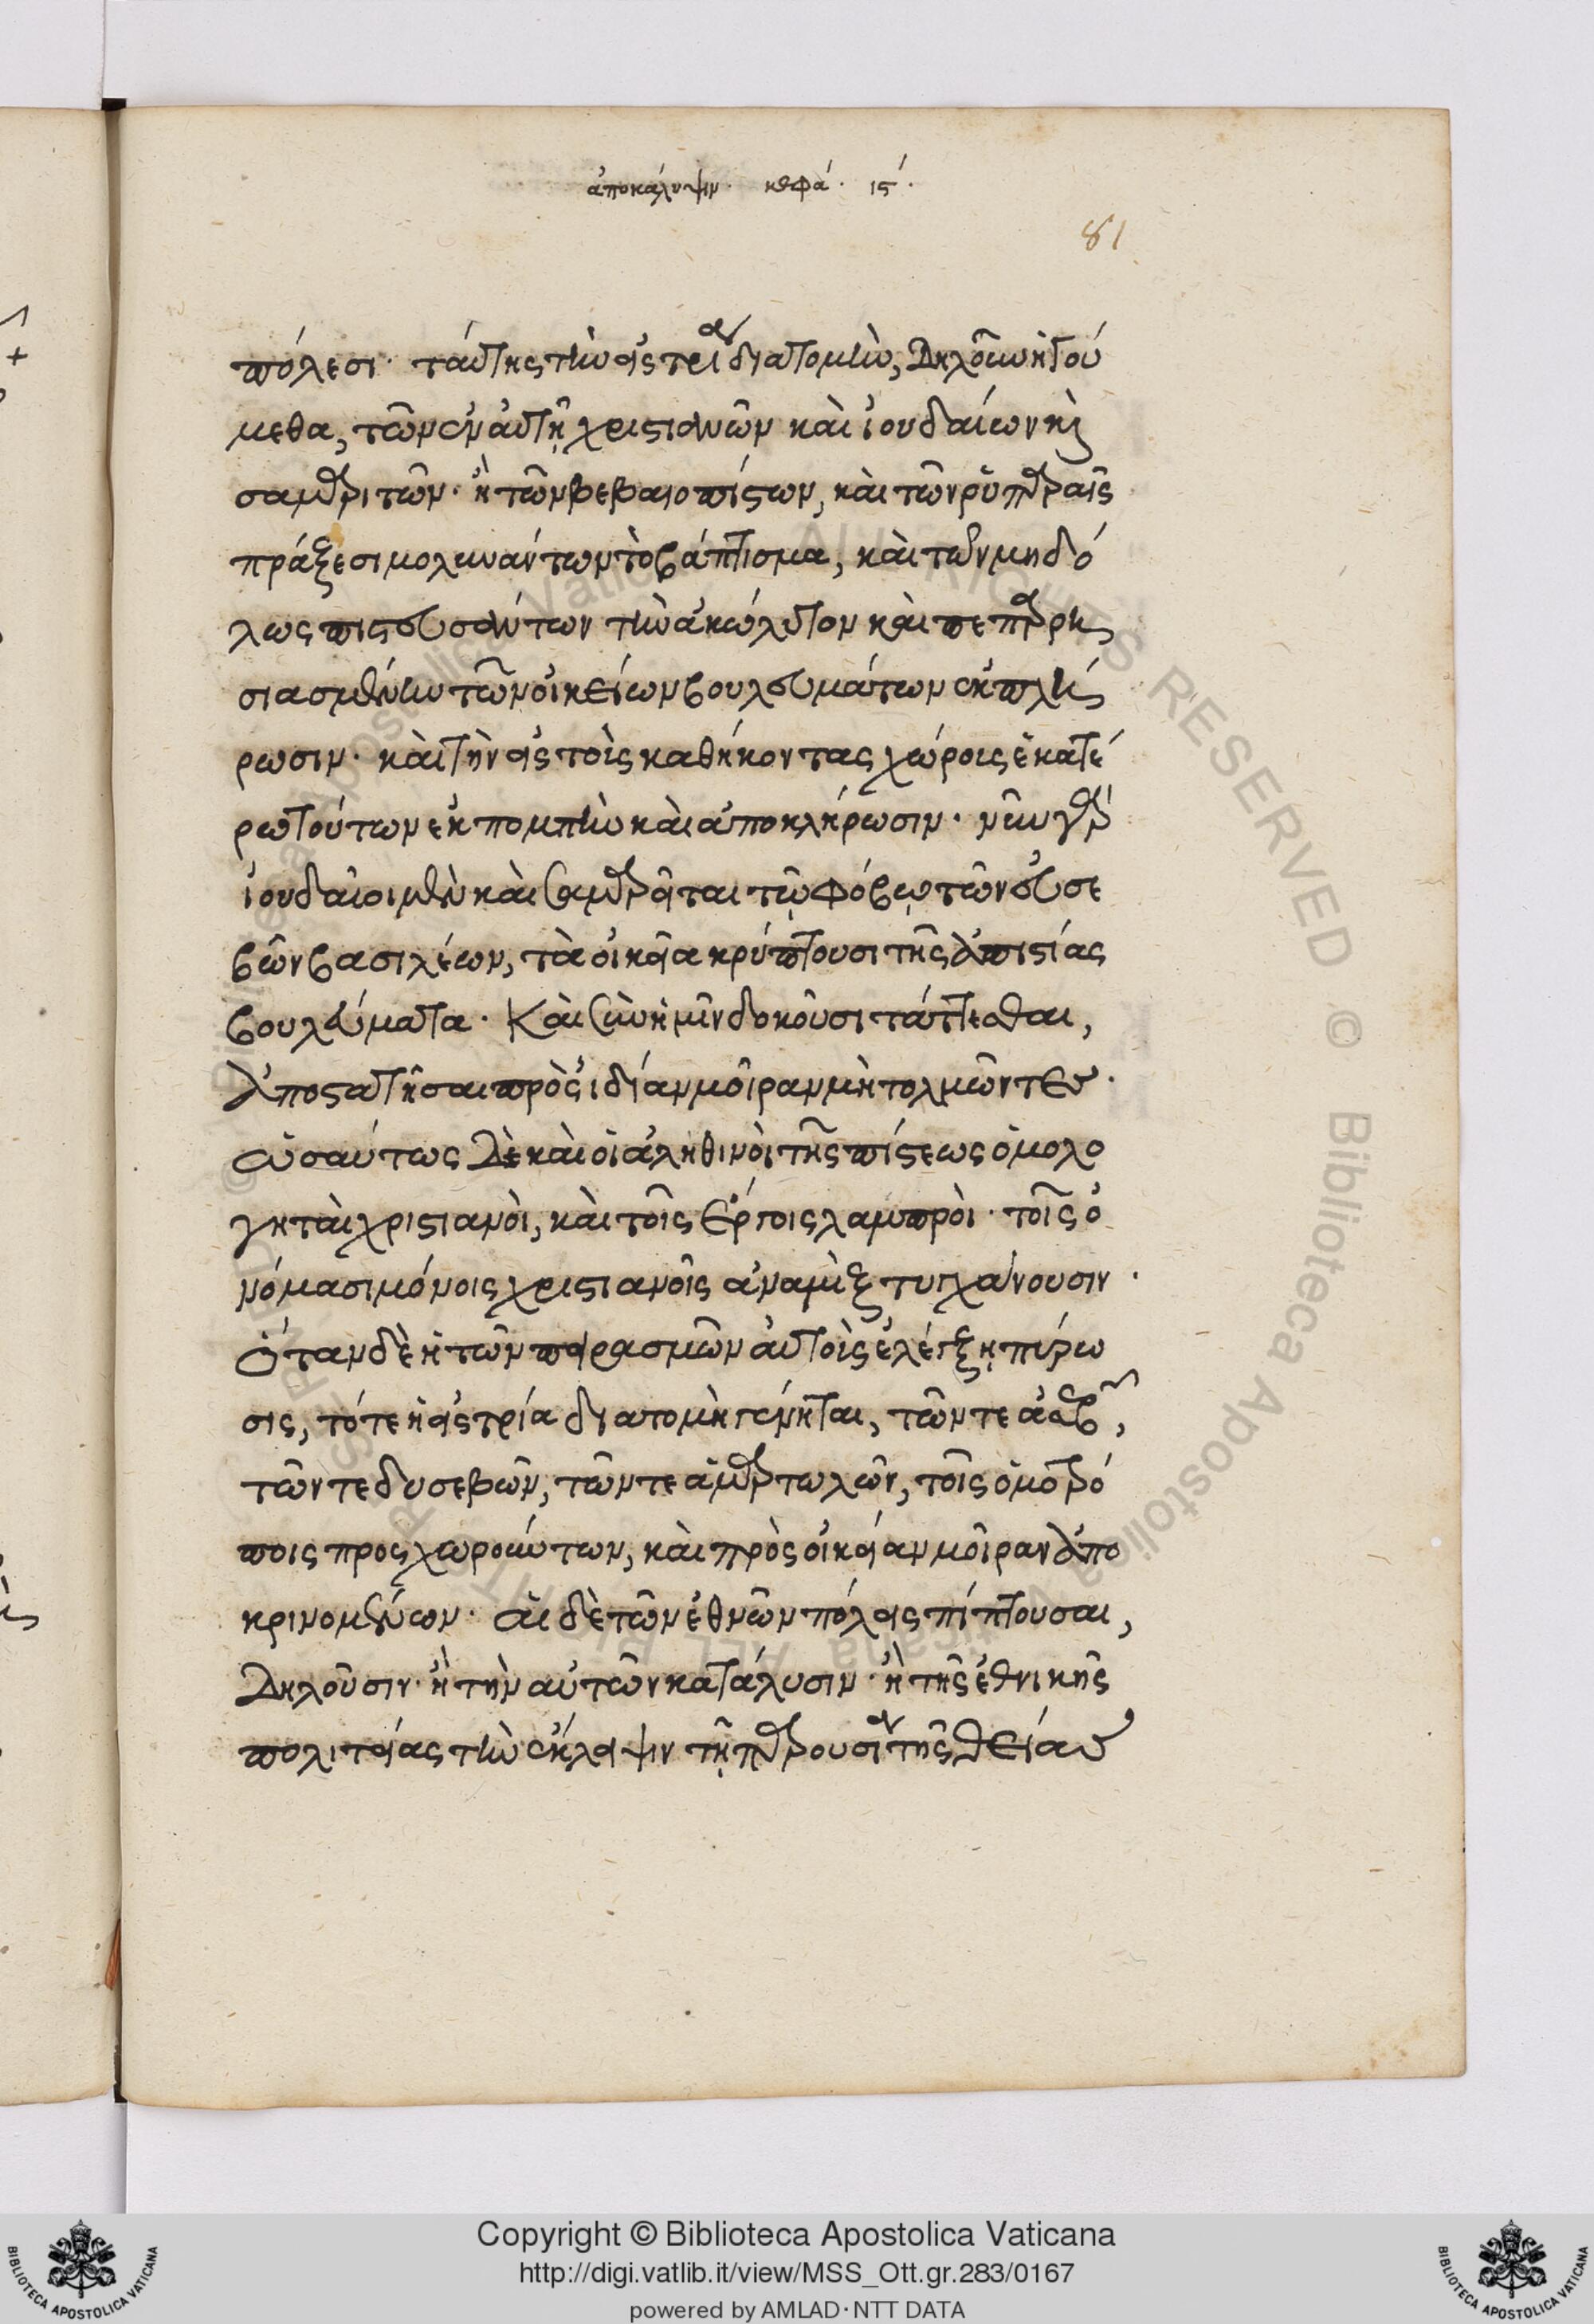 ἀποκάλυψιν· κεφά· ις´·
81
πόλεσι· ταύτης τὴν εἰς τρία διατομὴν, δηλοῦν ἡγού
μεθα, τῶν ἐν αὐτῇ χριστιανῶν καὶ ἰουδαίων καὶ
σαμαρειτῶν· ἢ τῶν βεβαιοπίστων, καὶ τῶν ῥυπαραῖς
πράξεσι μολυνάντων τὸ βάπτισμα, καὶ τῶν μηδό
λως πιστευσάντων τὴν ἀκώλυτον καὶ πεπαρρη
σιασμένην τῶν οἰκείων βουλευμάτων ἐκπλή
ρωσιν· καὶ τὴν εἰς τοὺς καθήκοντας χώρους ἑκατέ
ρω τούτων ἐκπομπὴν καὶ ἀποκλήρωσιν· νῦν γὰρ
ἰουδαῖοι μὲν καὶ σαμαρεῖται τῷ φόβῳ τῶν εὐσε
βῶν βασιλέων, τὰ οἰκεῖα κρύπτουσι τῆς ἀπιστίας
βουλεύματα· καὶ σὺν ἡμῖν δοκοῦσι τάττεσθαι,
ἀποστατῆσαι πρὸς ἰδίαν μοῖραν μὴ τολμῶντες·
ὡσαύτως δὲ καὶ οἱ ἀληθινοὶ τῆς πίστεως ὁμολο
γηταὶ χριστιανοὶ, καὶ τοῖς ἔργοις λαμπροὶ· τοῖς ὀ
νόμασι μόνοις χριστιανοῖς ἀναμὶξ τυγχάνουσιν·
ὅταν δὲ ἡ τῶν πειρασμῶν αὐτοὺς ἐλέγξῃ πύρω
σις, τότε ἡ εἰς τρία διατομὴ γένηται, τῶν τε ἀσεβῶν,
τῶν τε δυσεβῶν, τῶν τε ἁμαρτωλῶν, τοῖς ὁμοτρό
ποις προσχωρούντων, καὶ πρὸς οἰκείαν μοῖραν ἀπο
κρινομένων· αἱ δὲ τῶν ἐθνῶν πόλεις πίπτουσαι,
δηλοῦσιν· ἢ τὴν αὐτῶν κατάλυσιν· ἢ τῆς ἐθνικῆς
πολιτείας τὴν ἔκλειψιν τῇ παρουσίᾳ τῆς θείας
Copyright © Biblioteca Apostolica Vaticana
http://digi.vatlib.it/view/MSS_Ott.gr.283/0167
powered by AMLAD·NTT DATA